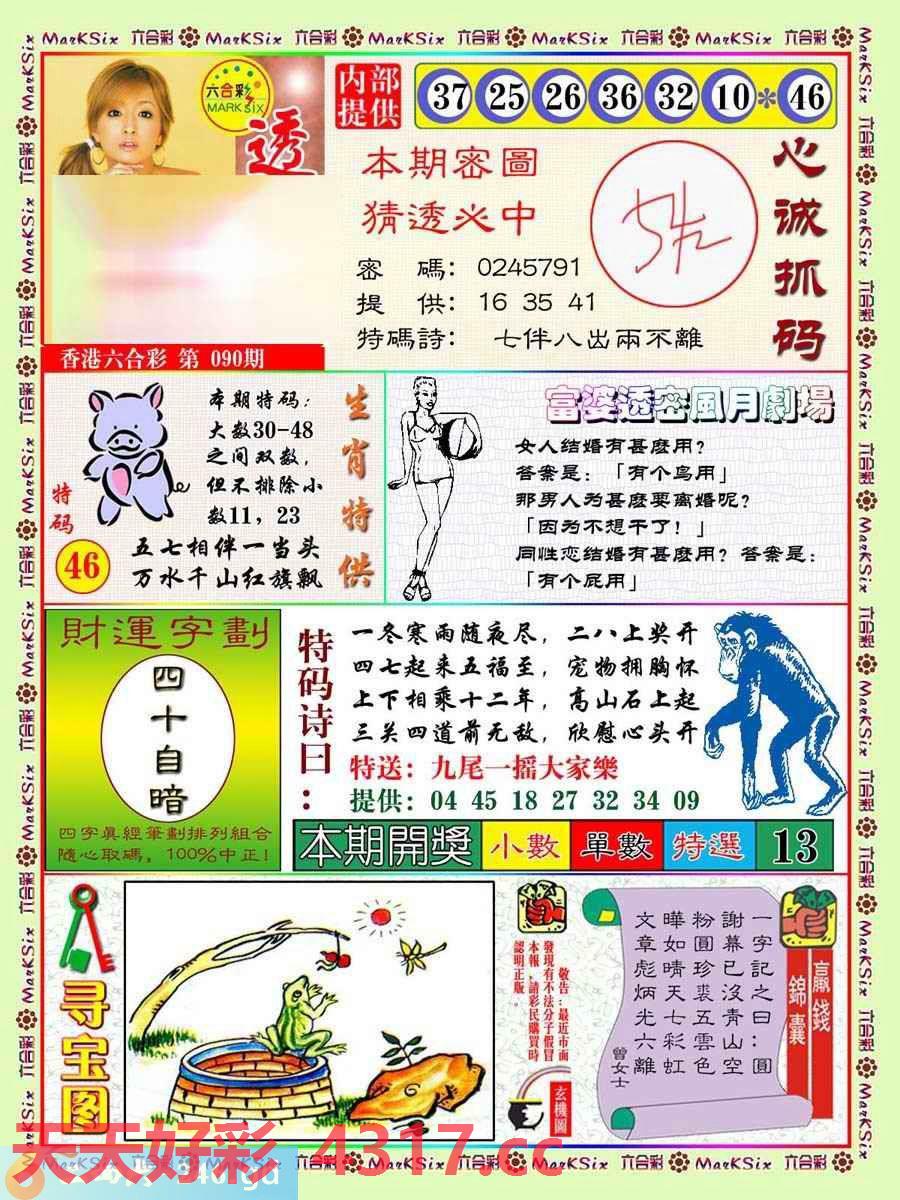 MarKSix 六合彩 MarKSix 六合彩 MarKSix 六合彩 MarKSix 六合彩 MarKSix 六合彩 MarKSix 六合彩
六合彩
MARK SIX
透
内部
提供
37 25 26 36 32 10 * 46
本期密圖
猜透必中
密 碼: 0245791
提 供: 16 35 41
特碼詩: 七伴八出兩不離
心诚抓码
香港六合彩 第 090期
本期特码:
大数30-48
之间双数,
但不排除小
数11, 23
五七相伴一当头
万水千山红旗飘
特码
46
生肖特供
富婆透密風月劇場
女人结婚有甚麽用?
答案是: 「有个鸟用」
那男人为甚麽要离婚呢?
「因为不想干了! 」
同性恋结婚有甚麽用? 答案是:
「有个屁用」
財運字劃
四十自暗
四字真經筆劃排列組合
隨心取碼, 100%中正!
特码诗曰:
一冬寒雨随夜尽, 二八上奖开
四七起来五福至, 宠物拥胸怀
上下相乘十二年, 高山石上起
三关四道前无敌, 欣慰心头开
特送: 九尾一摇大家樂
提供: 04 45 18 27 32 34 09
本期開獎 小數 單數 特選 13
寻宝图
敬告:最近市面
發現有不法分子假冒
本報,請彩民購買時
認明正版。
玄機圖
一字記之曰:圓
謝幕已沒青山空
粉圓珍裘五雲色
曄如晴天七彩虹
文章彪炳光六離
曾女士
贏錢
錦囊
天天好彩 4317.cc
MarKSix 六合彩 MarKSix 六合彩 MarKSix 六合彩